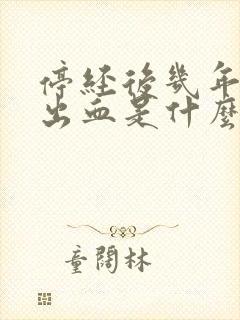 停経後幾年
出血是什麼
童闊林